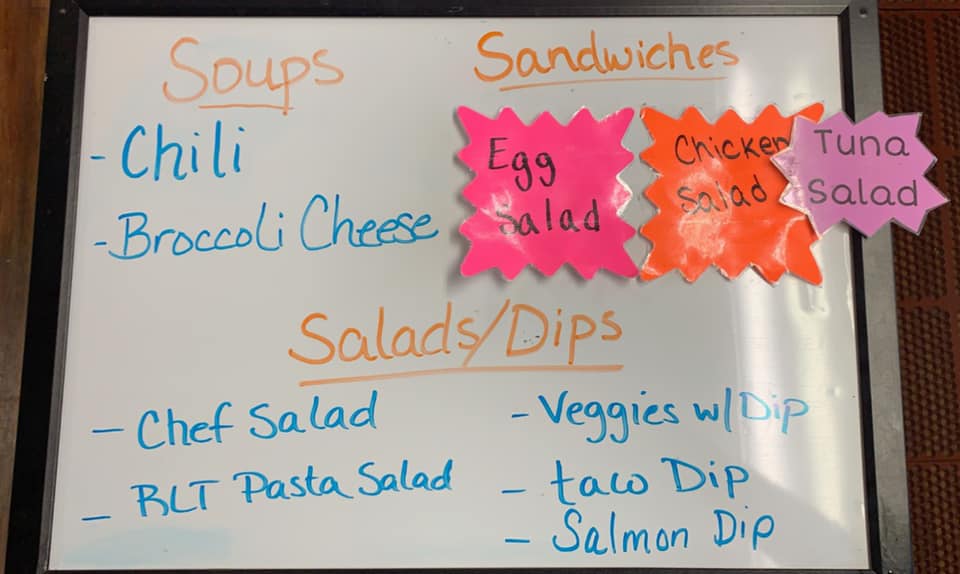 Soups
- Chili
- Broccoli Cheese
Sandwiches
Egg
Salad
Chicken
Salad
Tuna
Salad
Salads/Dips
- Chef Salad
- BLT Pasta Salad
- Veggies w/ Dip
- taco Dip
- Salmon Dip